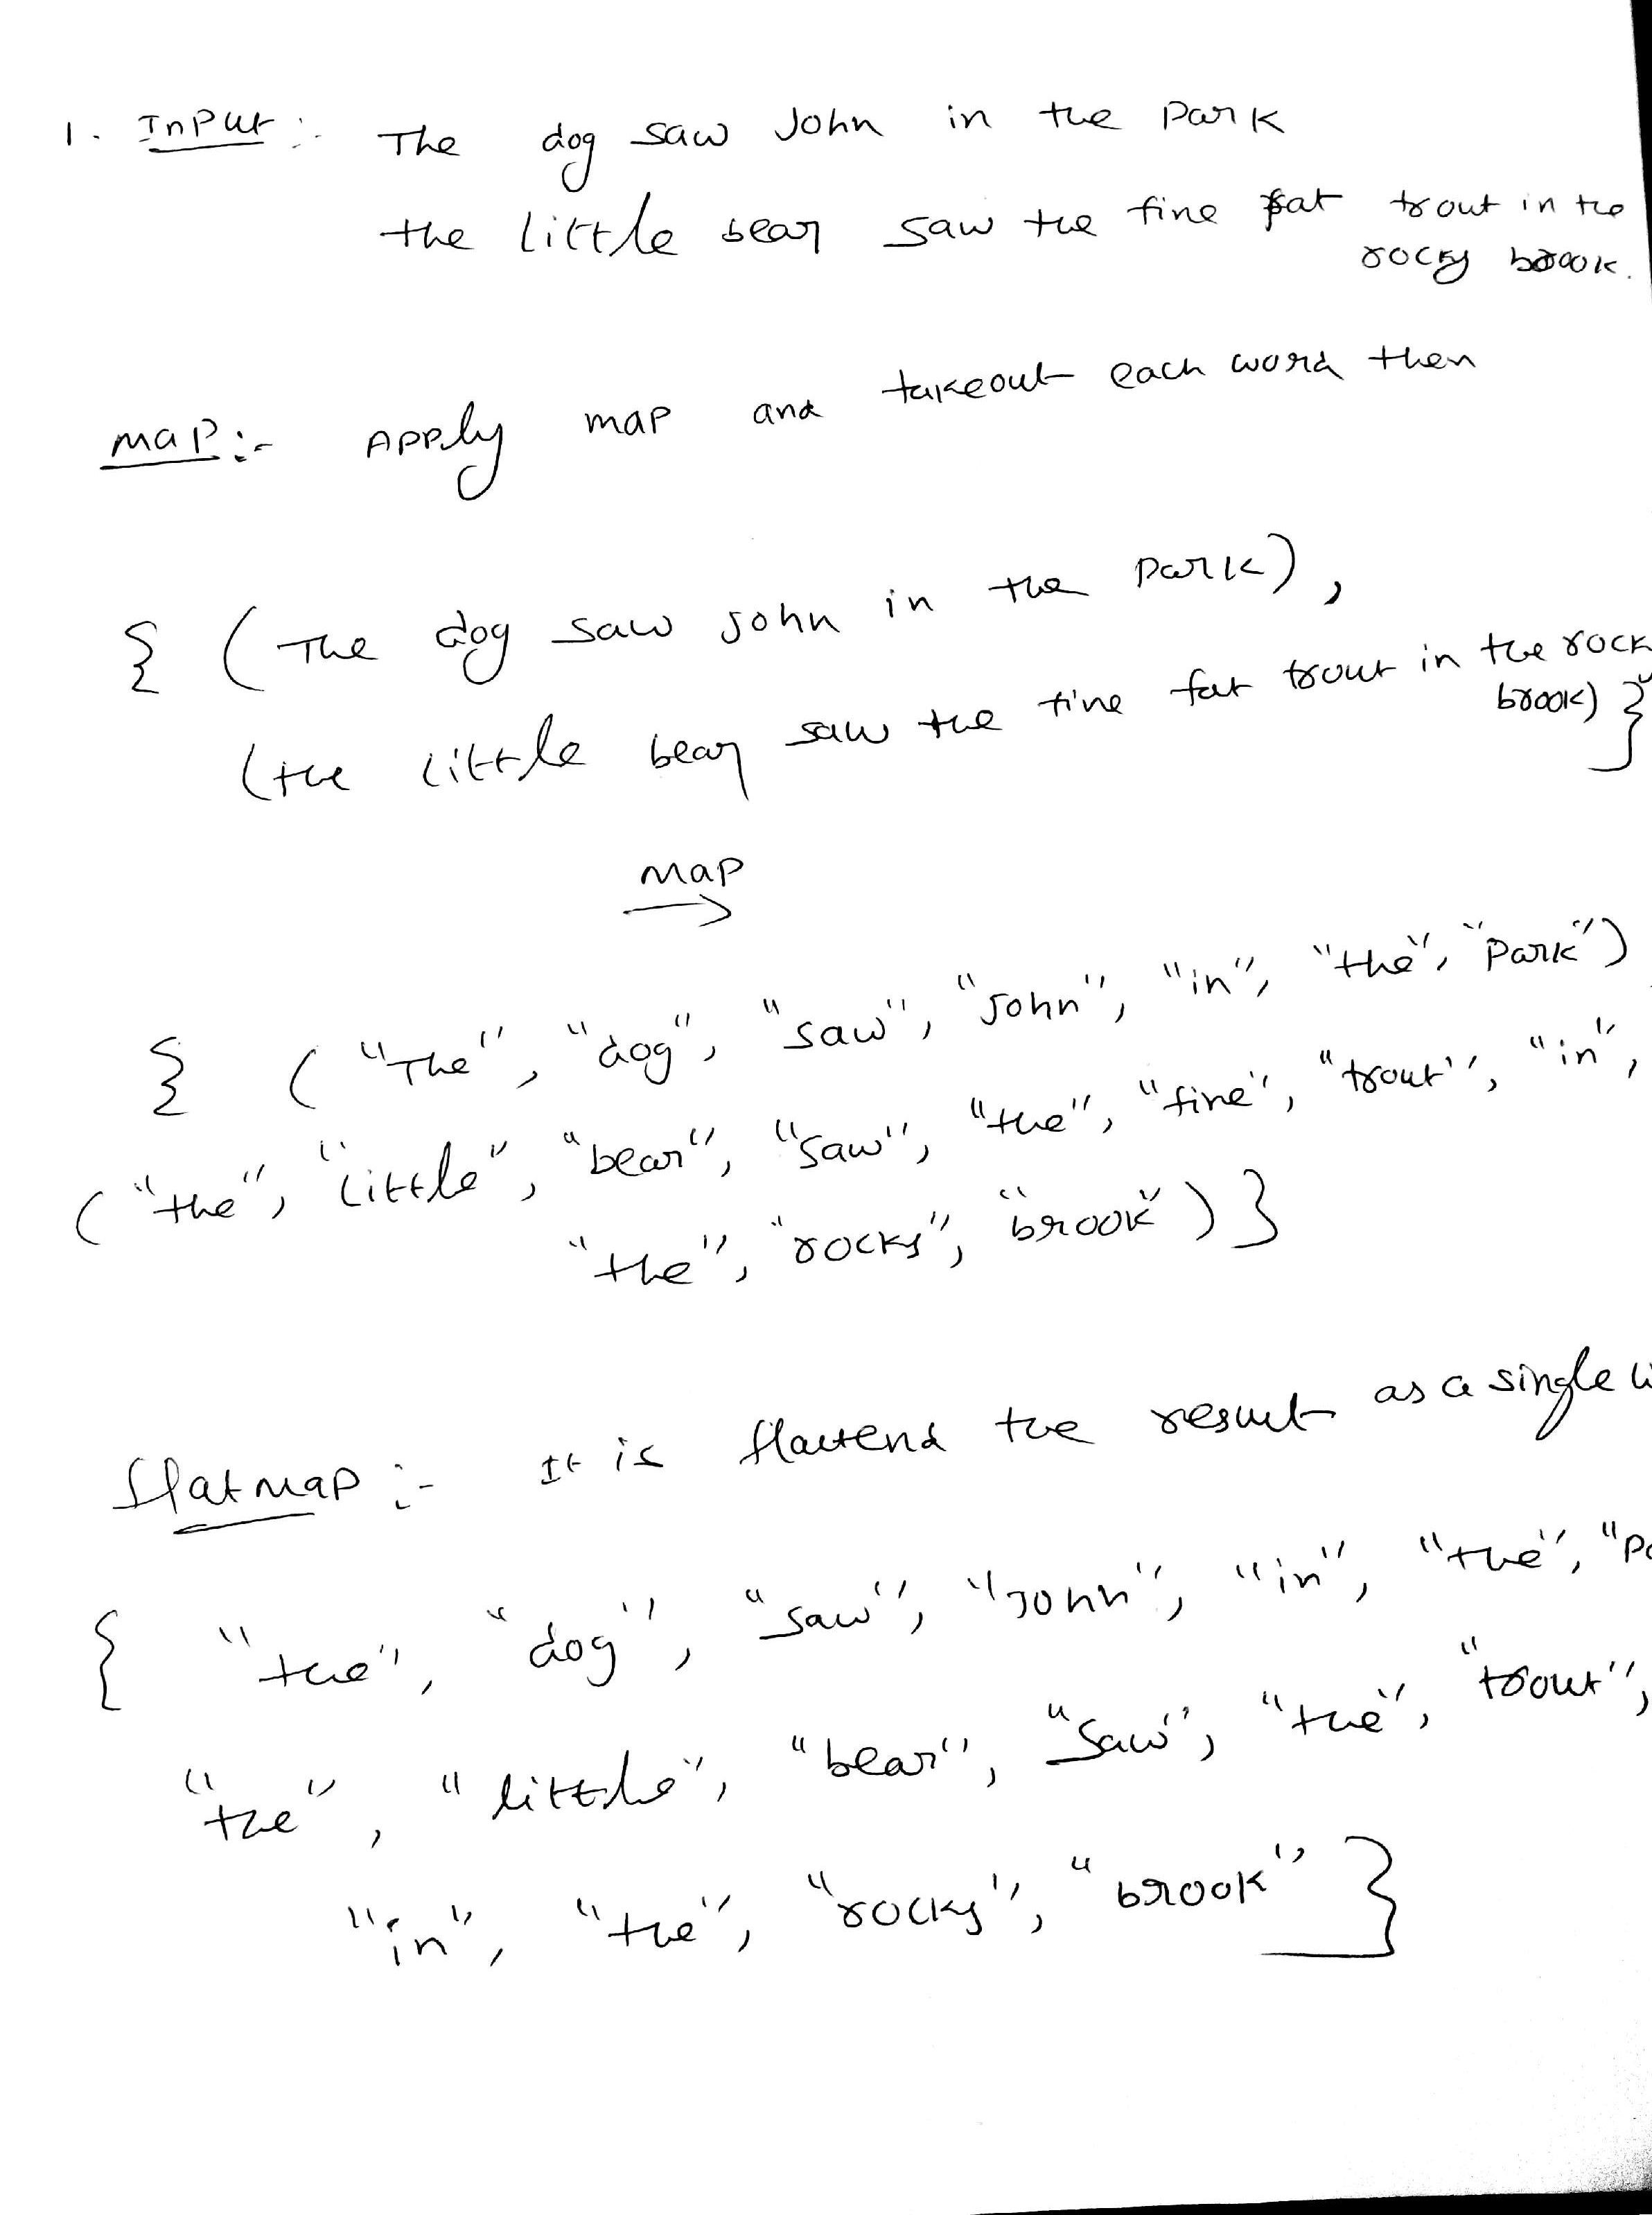 1. Input :- The dog saw John in the park
the little bear saw the fine fat trout in the
rocky brook.
Map :- Apply map and takeout each word then
{ (The dog saw John in the park),
(the little bear saw the fine fat trout in the rock
brook) }
Map
{ ("The", "dog", "saw", "John", "in", "the", "park")
("the", "little", "bear", "saw", "the", "fine", "trout", "in",
"the", "rocky", "brook") }
flatmap :- It is flattend the result as a single
{ "the", "dog", "saw", "John", "in", "the",
"the", "little", "bear", "saw", "the", "trout",
"in", "the", "rocky", "brook" }